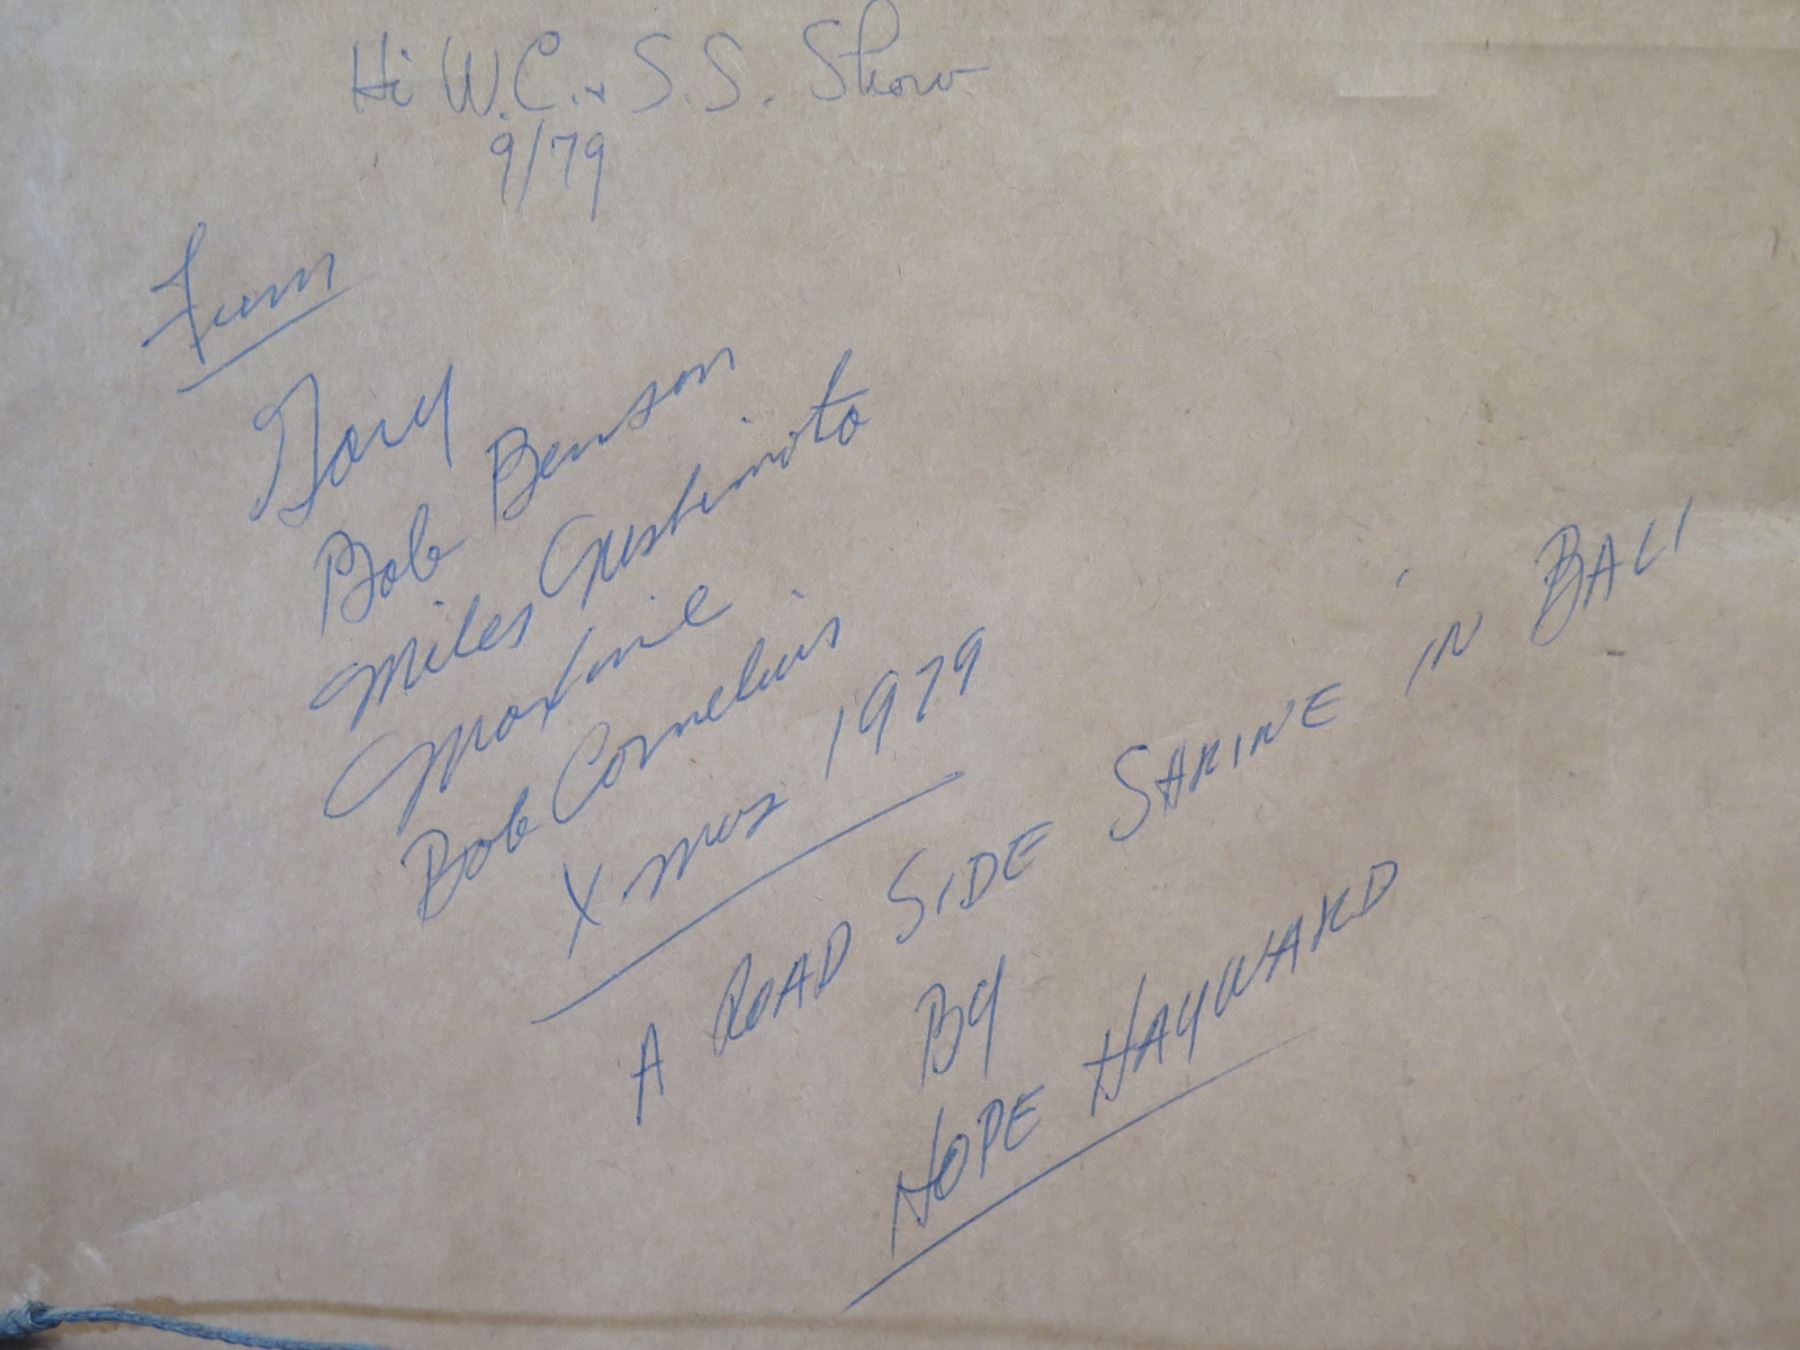 Hi W.C. & S.S. Show
9/79
From
Gary
Bob Benson
Miles
Maxine
Bob Cornelius
Xmas 1979
A ROAD SIDE SHRINE IN BALI
BY
HOPE HAYWARD